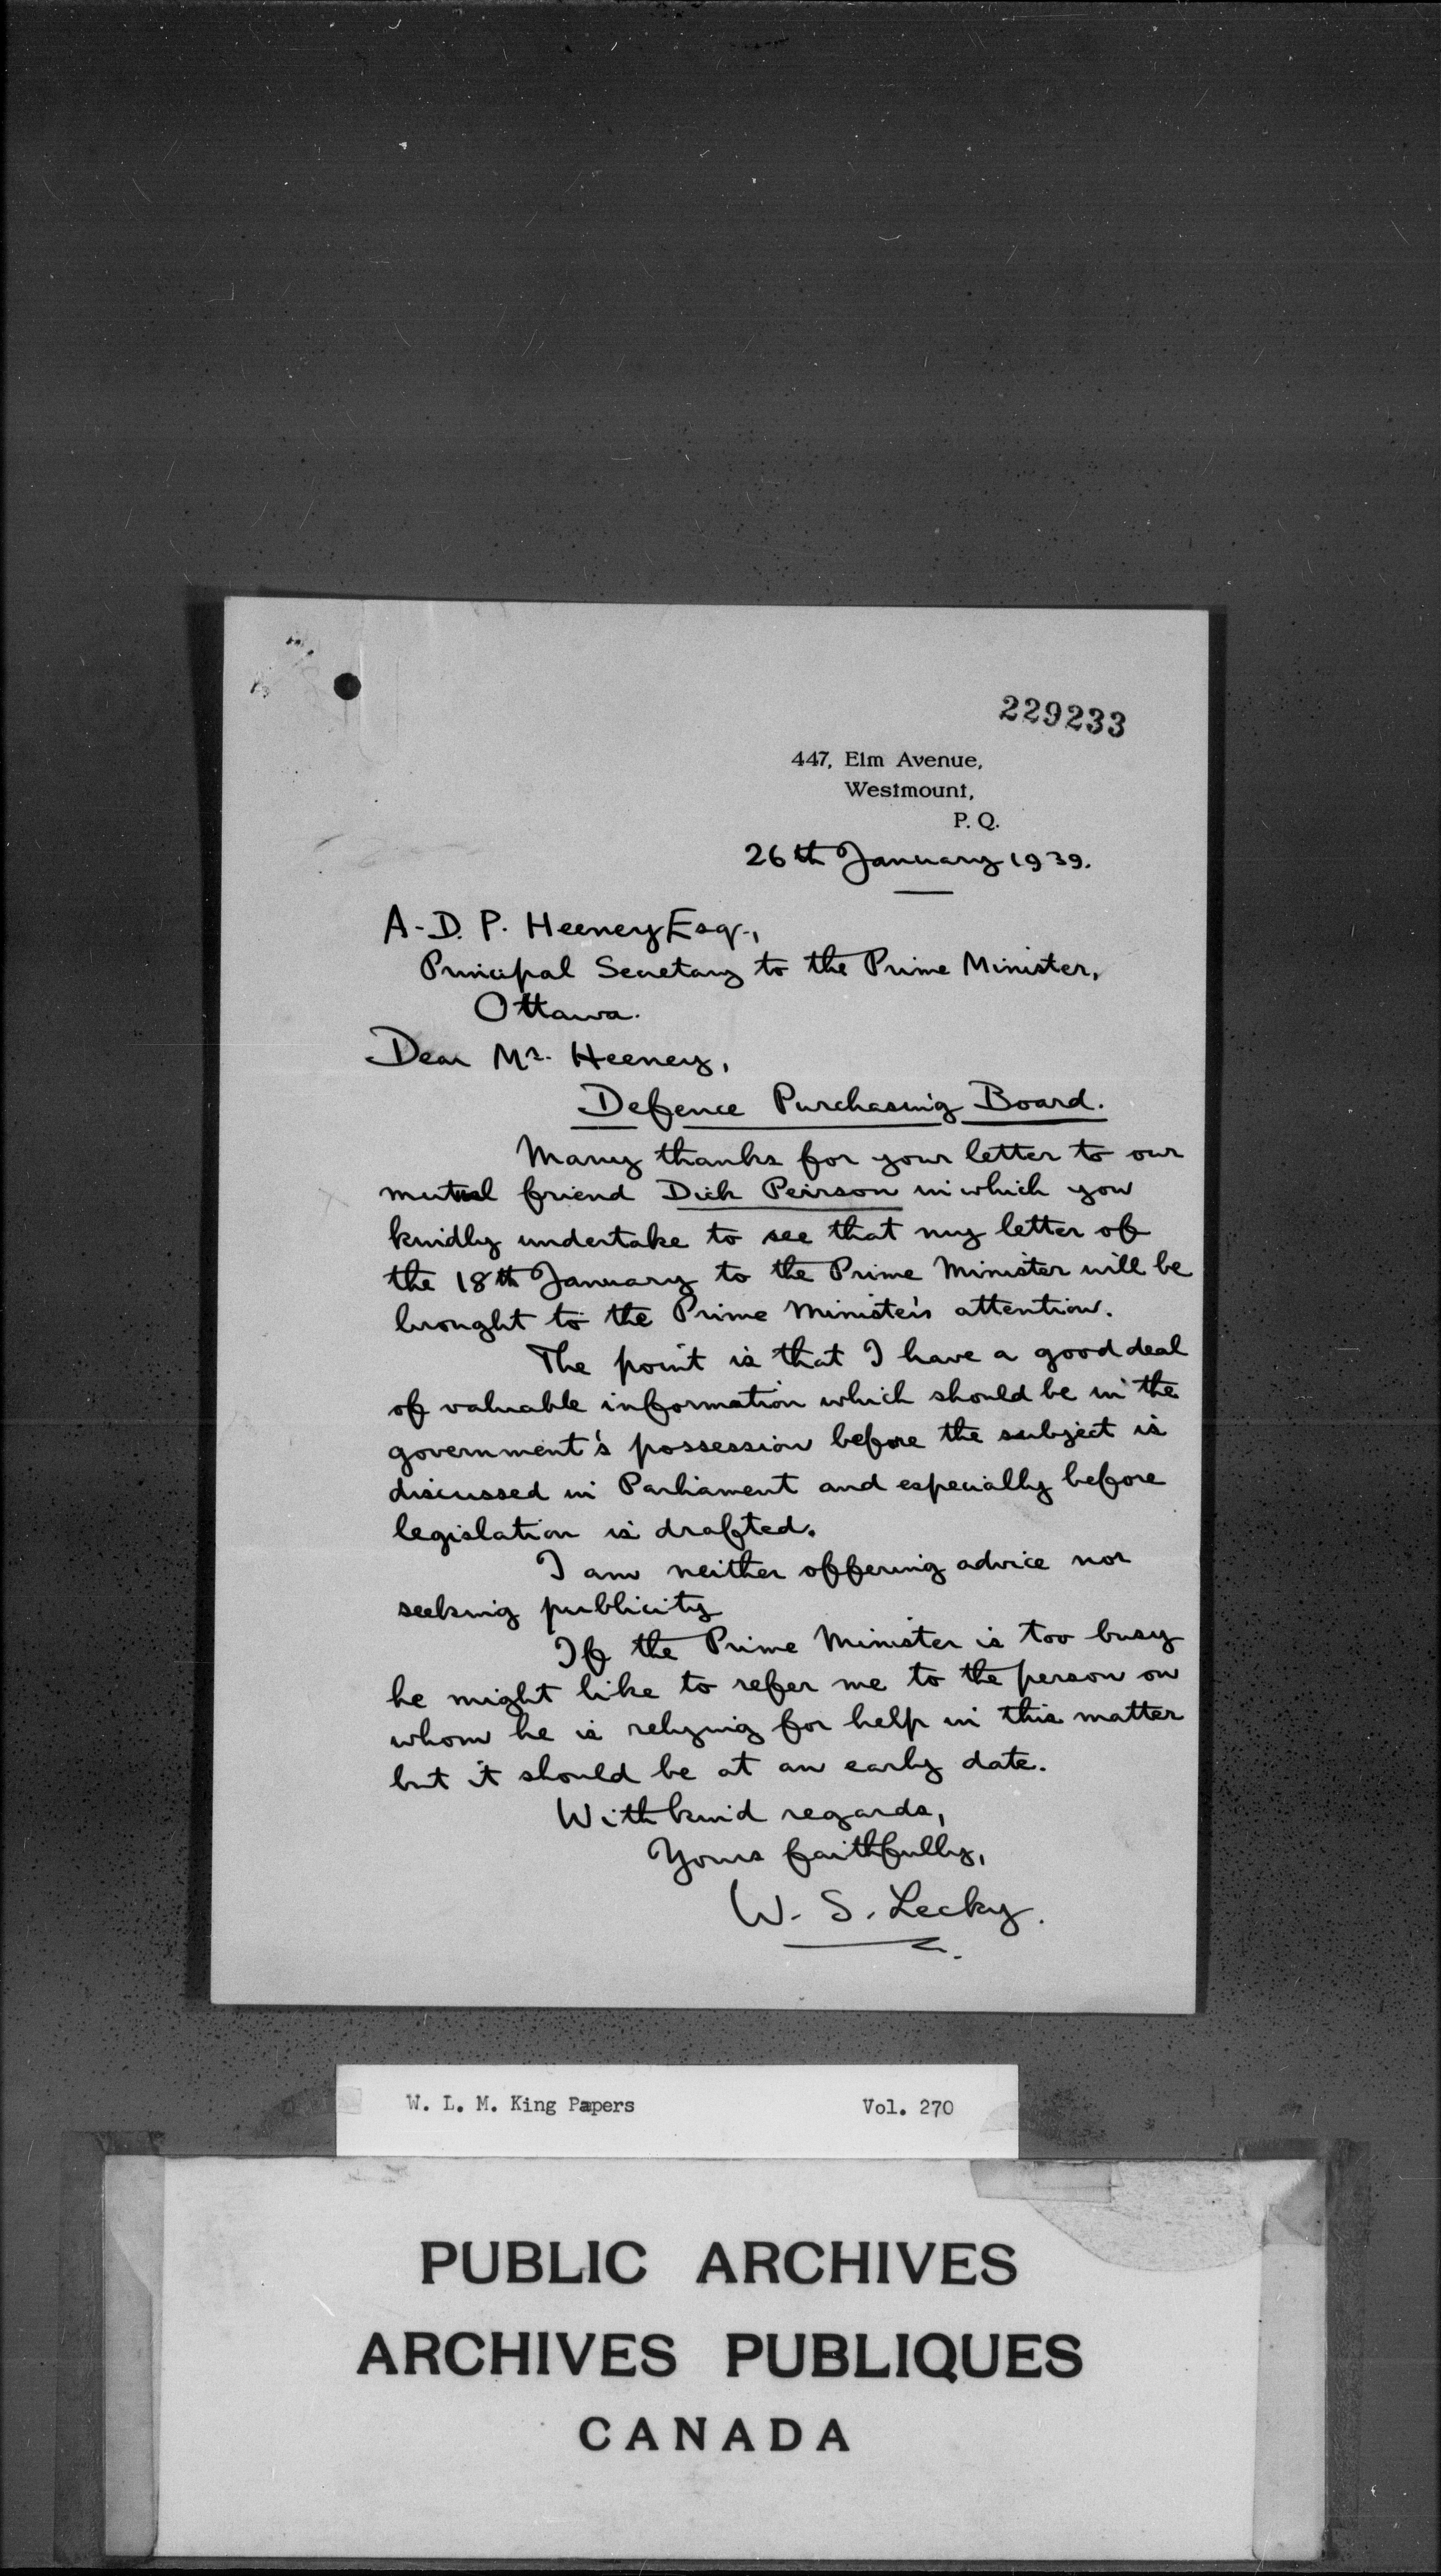 229233
447, Elm Avenue,
Westmount,
P. Q.
26th January 1939.
A. D. P. Heeney Esq.,
Principal Secretary to the Prime Minister,
Ottawa.
Dear Mr. Heeney,
Defence Purchasing Board.
Many thanks for your letter to our
mutual friend Dick Peirson in which you
kindly undertake to see that my letter of
the 18th January to the Prime Minister will be
brought to the Prime Minister's attention.
The point is that I have a good deal
of valuable information which should be in the
government's possession before the subject is
discussed in Parliament and especially before
legislation is drafted.
I am neither offering advice nor
seeking publicity
If the Prime Minister is too busy
he might like to refer me to the person on
whom he is relying for help in this matter
but it should be at an early date.
With kind regards,
Yours faithfully,
W. S. Lecky.
W. L. M. King Papers Vol. 270
PUBLIC ARCHIVES
ARCHIVES PUBLIQUES
CANADA